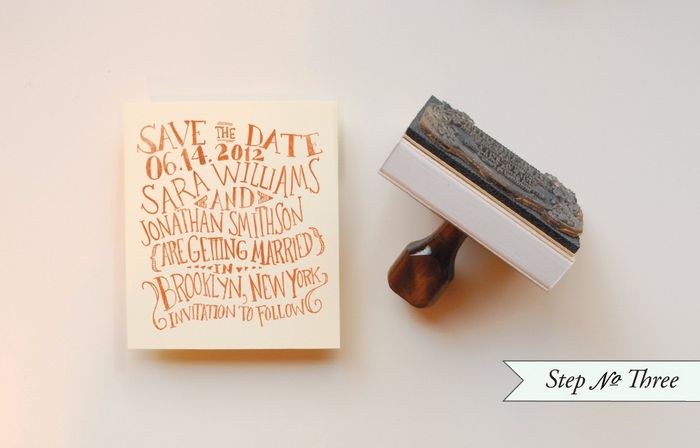 SAVE THE DATE
06.14.2012
SARA WILLIAMS
AND
JONATHAN SMITHSON
{ARE GETTING MARRIED}
IN
BROOKLYN, NEW YORK
INVITATION TO FOLLOW
Step No Three